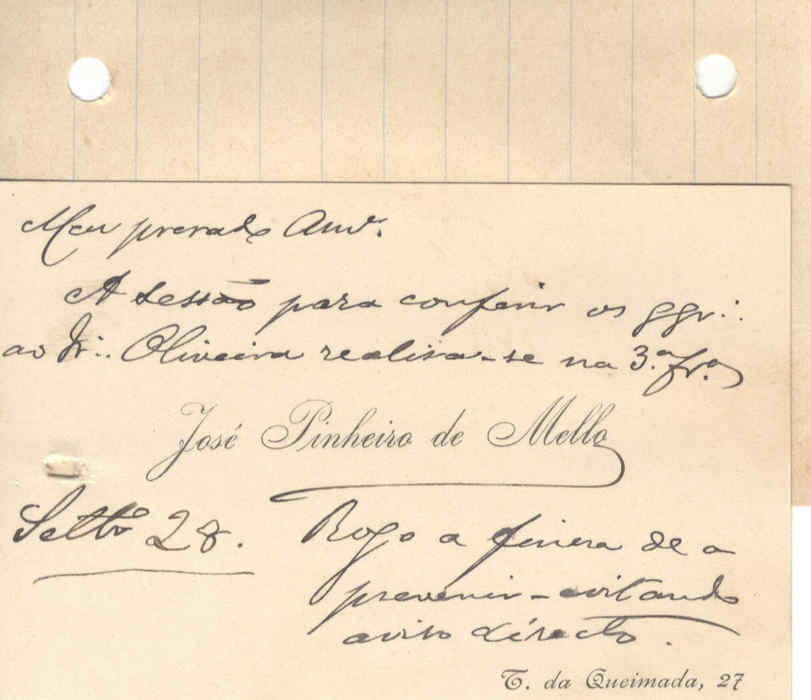 Meu presado Amº.
A sessão para conferir os ggr∴
ao Ir∴ Oliveira realisa-se na 3.ª fr.ª
José Pinheiro de Mello
Settbrº 28.
Rogo a fineza de a
prevenir - evitando
aviso directo.
T. da Queimada, 27